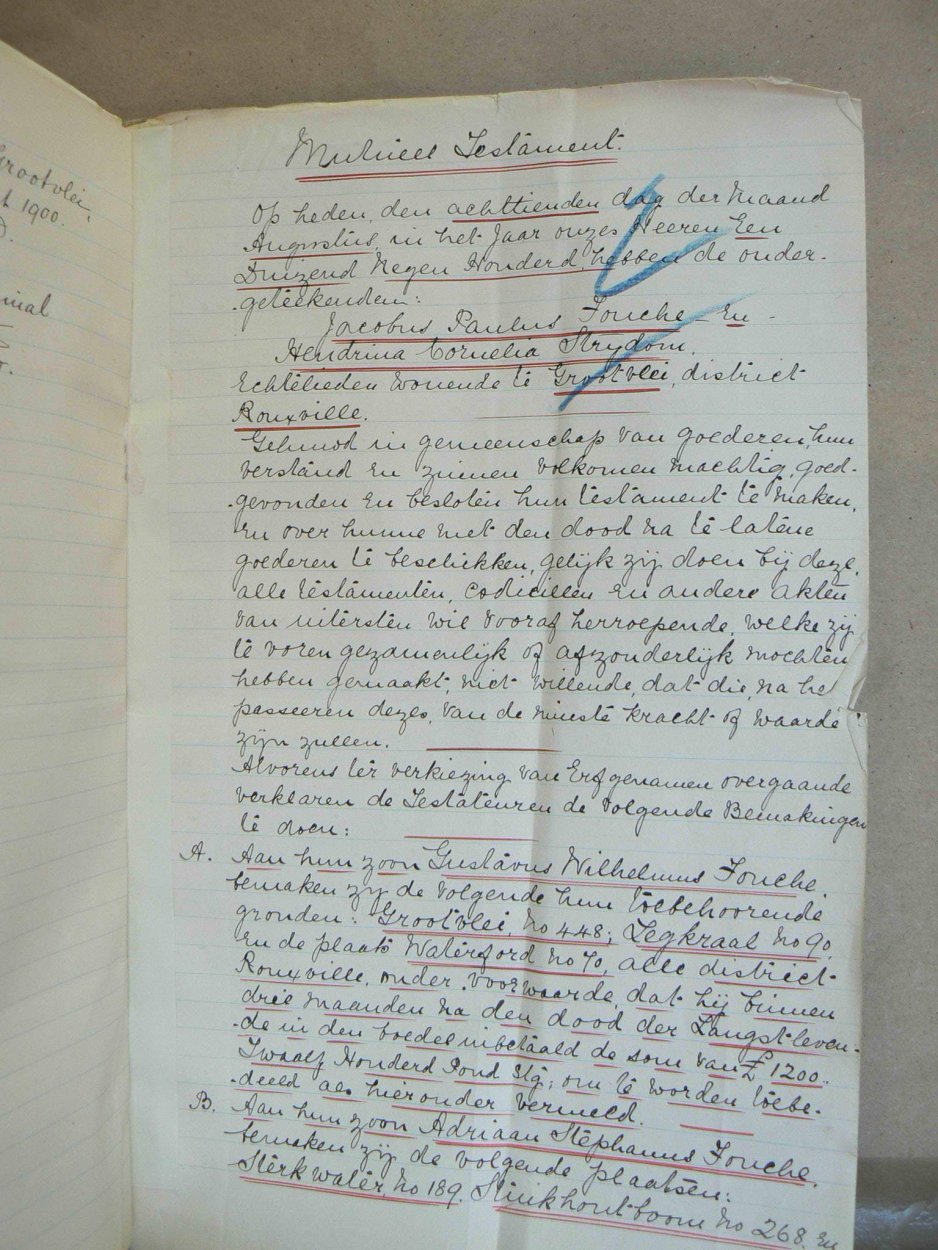 Grootvlei,
t 1900.
Mutueel Testament.
Op heden, den achttienden dag der Maand
Augustus, in het Jaar onzes Heeren Een
Duizend Negen Honderd, hebben de onder-
-geteekenden:
Jacobus Paulus Fouche - En -
Hendrina Cornelia Strydom,
Echtelieden wonende te Grootvlei, district
Rouxville.
Gehuwd in gemeenschap van goederen, hun
verstand en zinnen volkomen machtig, goed-
-gevonden en besloten hun testament te maken,
en over hunne met den dood na te latene
goederen te beschikken, gelijk zij doen bij deze,
alle testamenten, codicillen en andere akten
van uitersten wil vooraf herroepende, welke zij
te voren gezamenlijk of afzonderlijk mochten
hebben gemaakt, niet willende, dat die, na he
passeeren dezes, van de minste kracht of waarde
zijn zullen.
Alvorens ter verkiezing van Erfgenamen overgaande
verklaren de Testateuren de volgende Bemakingen
te doen:
A. Aan hun zoon Gustavus Wilhelmus Fouche,
bemaken zij de volgende hun toebehoorende
gronden: Grootvlei, No 448; Legkraal No 90,
en de plaats Waterford No 70, alle district
Rouxville, onder voorwaarde, dat hij binnen
drie maanden na den dood der Langstleven-
-de in den boedel inbetaald de som van £1200.
Twaalf Honderd Pond Stg; om te worden toebe-
-deeld als hieronder vermeld.
B. Aan hun zoon Adriaan Stephanus Fouche,
bemaken zij de volgende plaatsen:
Sterkwater, No 189, Stinkhoutboom No 268, En